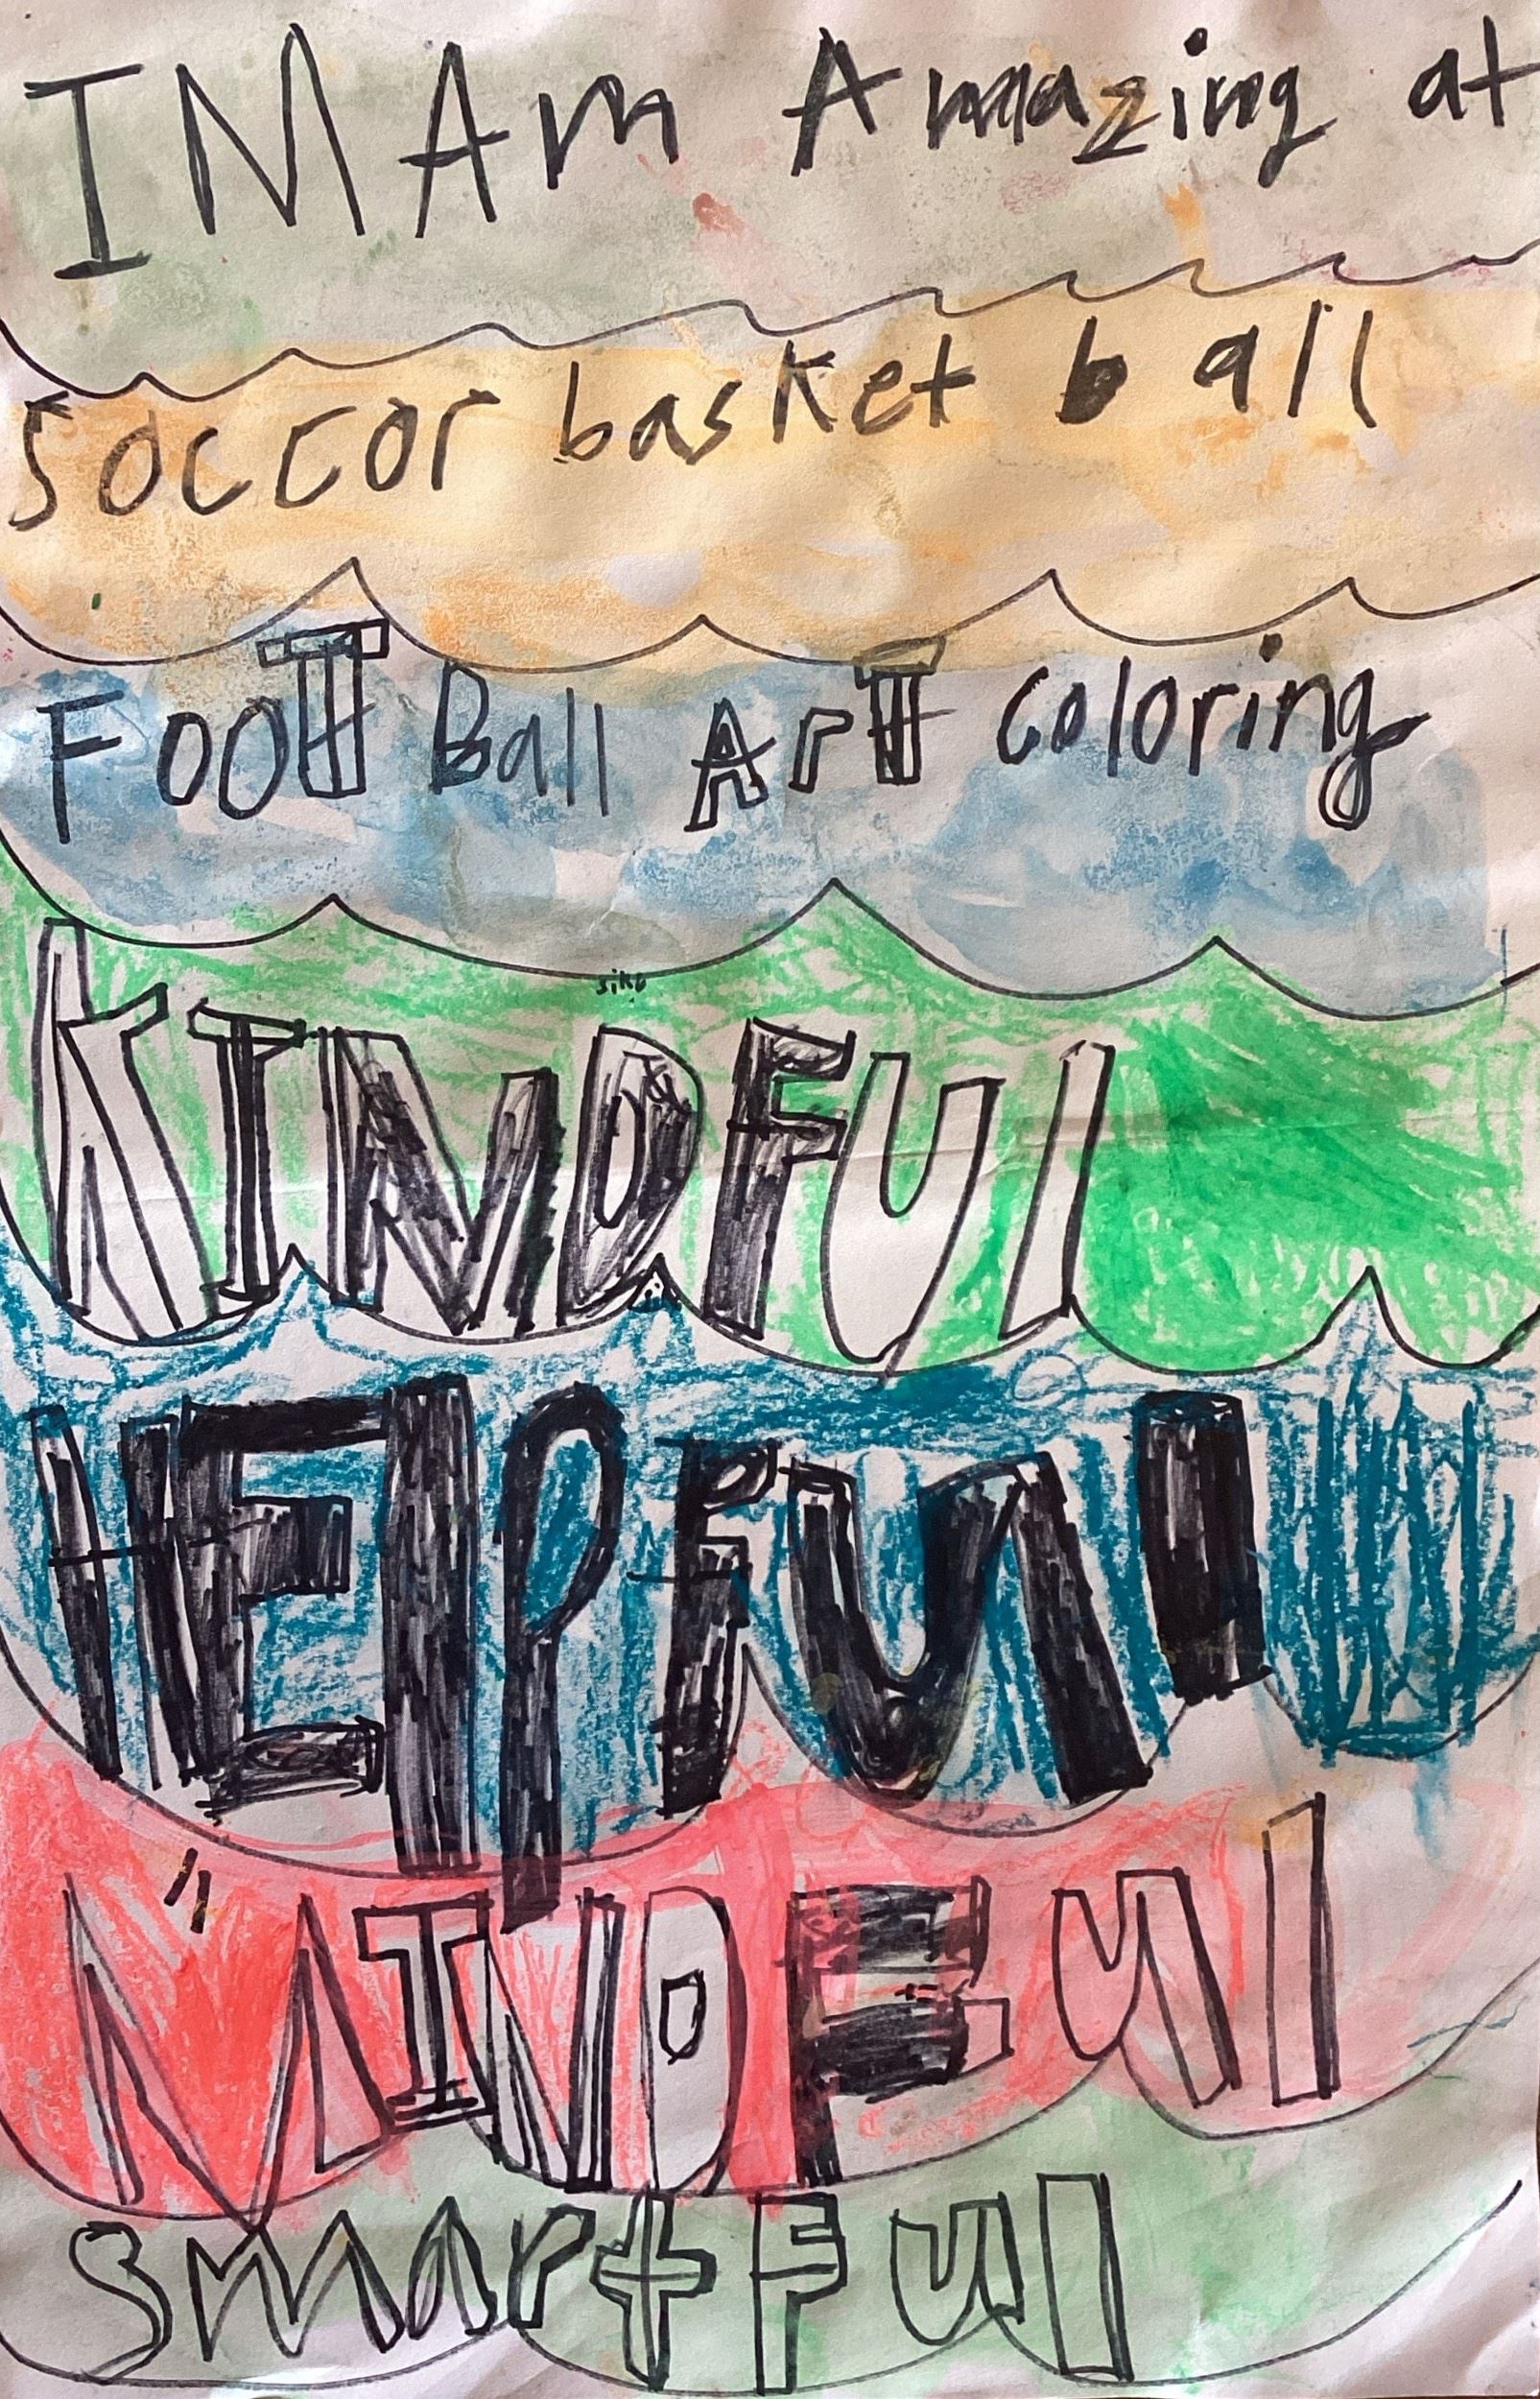 IMAm Amazing at
soccor basket ball
FooT Ball ArT coloring
KINDFUl
HElpFul
MINDFul
smartFul